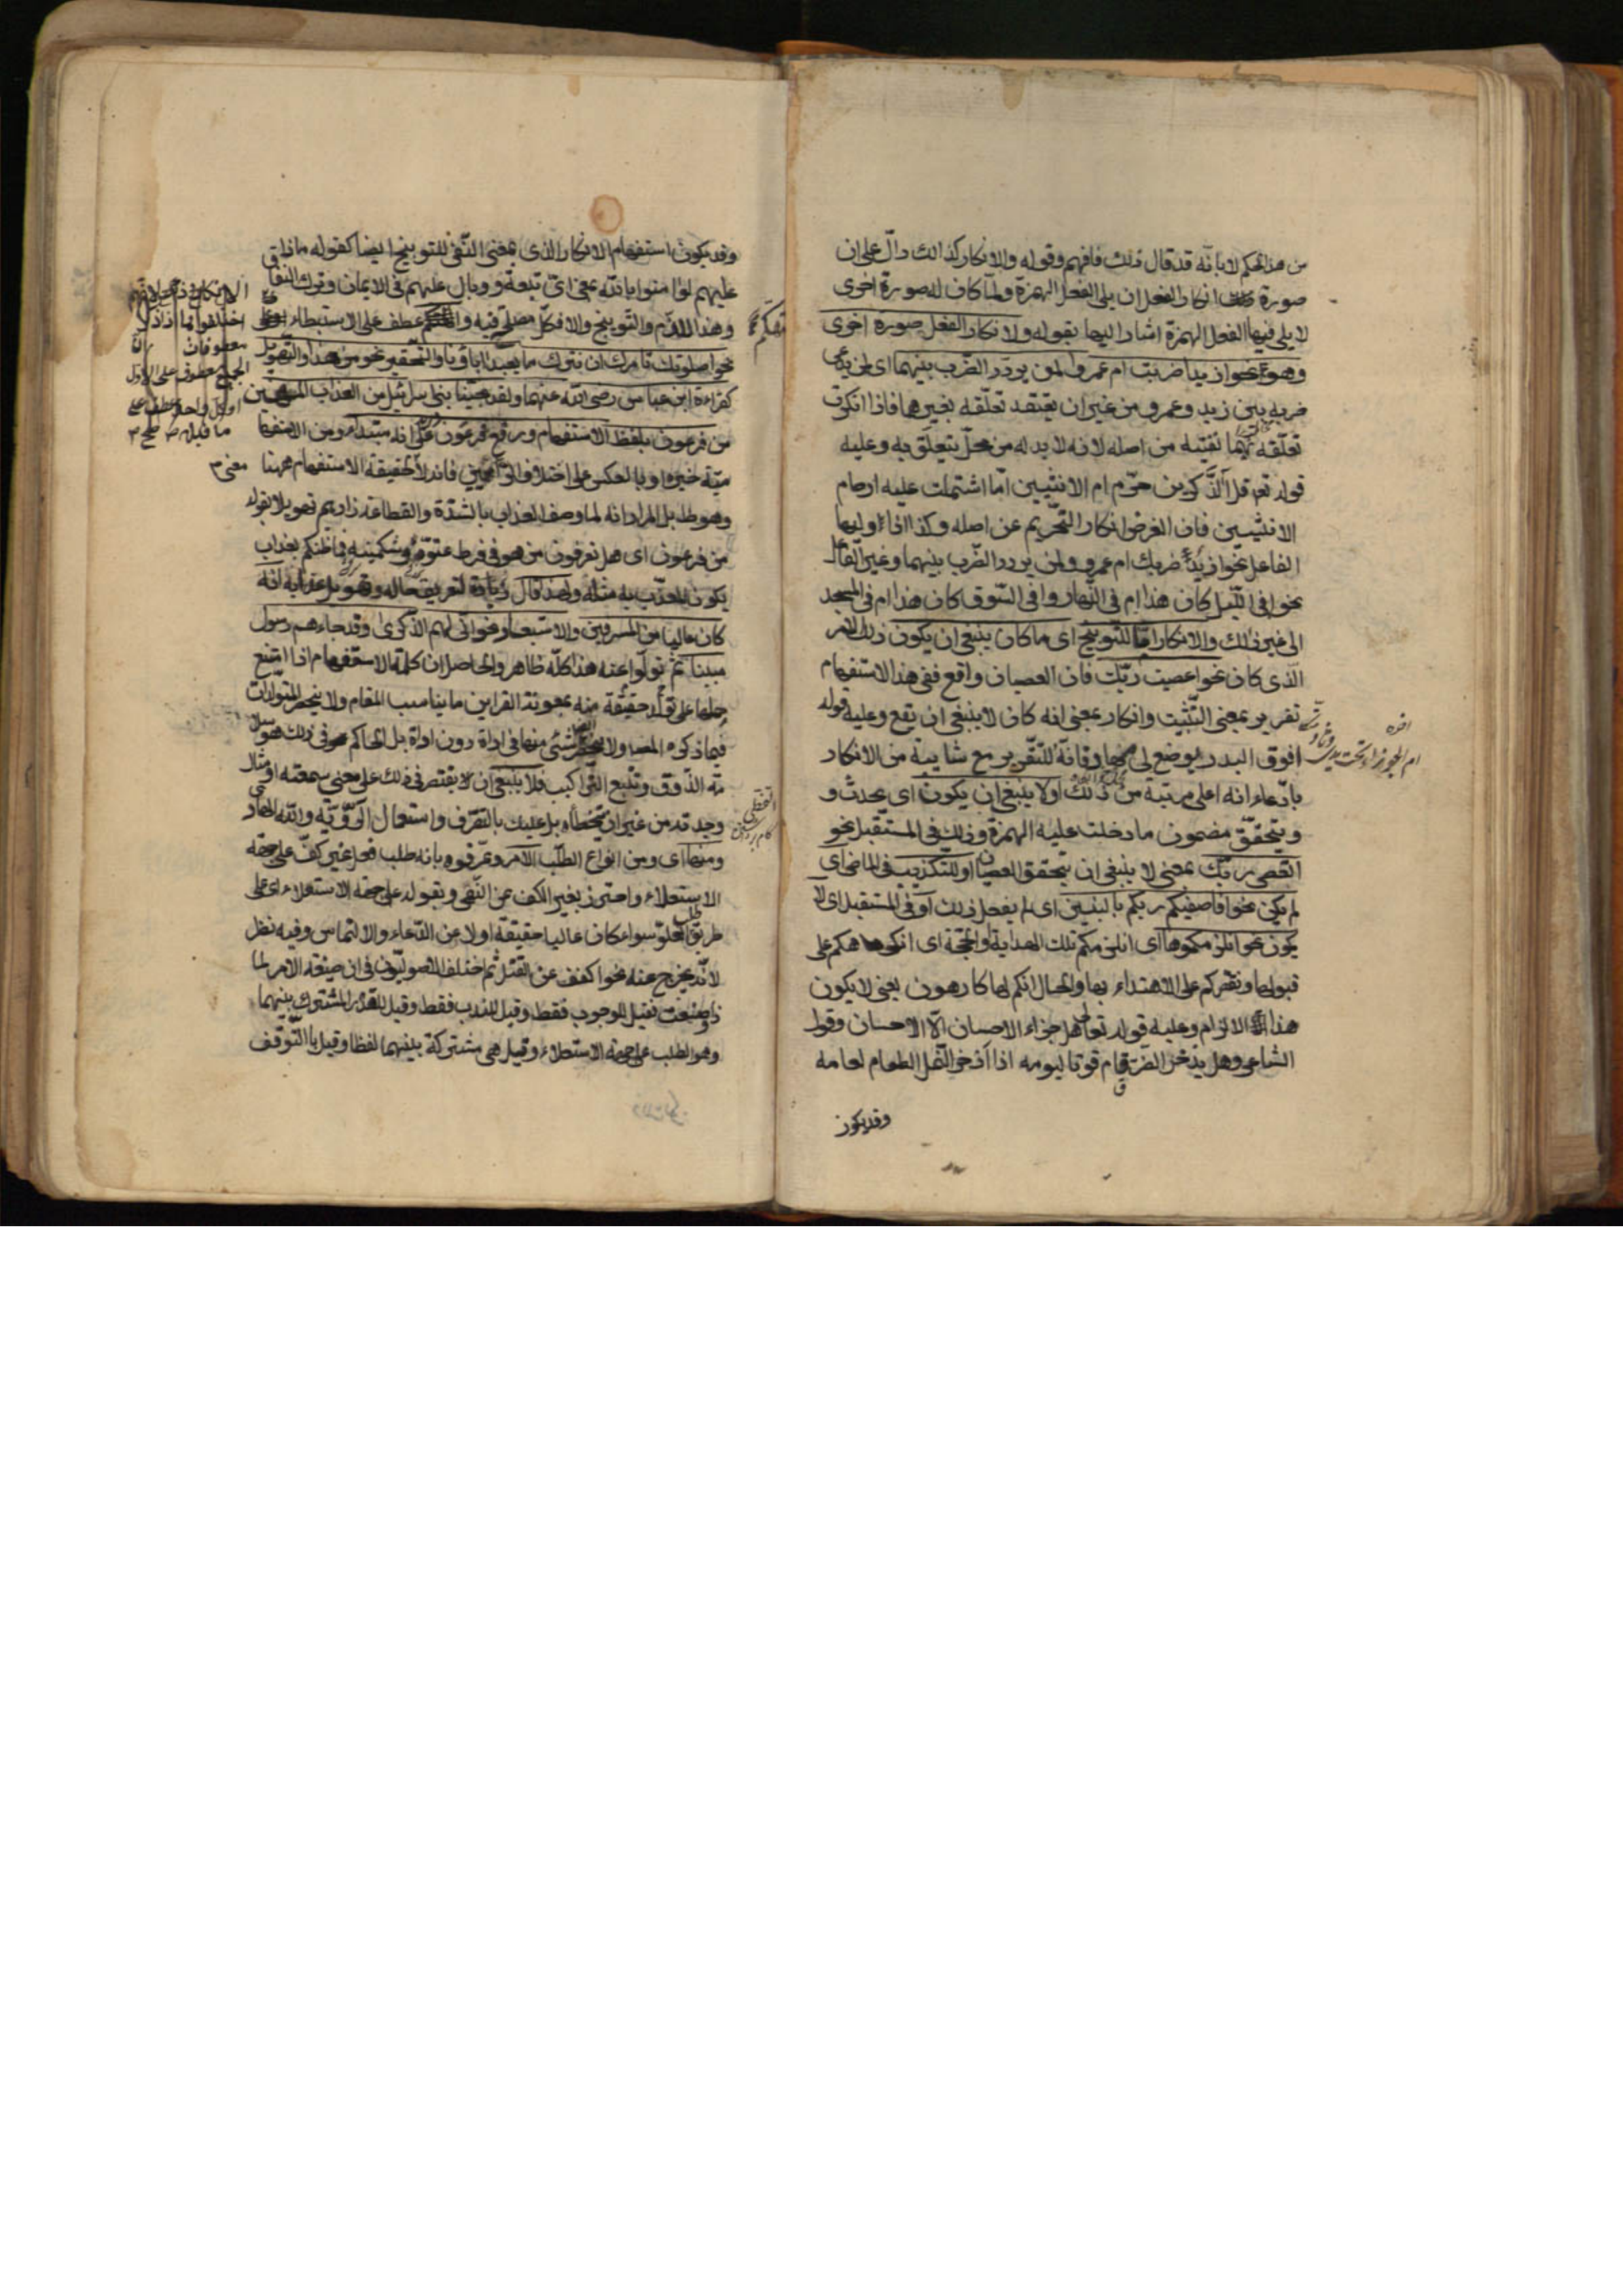 من هذا الحكم لا بانه قد قال ذلك فافهم وقوله والانكار كذالك دالّ على ان
صورة انكار الفعل ان يلى الفعل الهمزة ولمّا كان له صورة اخرى
لا يلى فيها الفعل الهمزة اشار اليها بقوله ولانكار الفعل صورة اخرى
وهو نحو ازيدا ضربت ام عمروا لمن يردد الضرب بينهما اى لمن يدعى
ضربه بين زيد وعمرو من غير ان يعتقد تعلّقه بغيرهما فاذا انكرت
تعلّقه بهما نفيته من اصله لانه لا بد له من محلّ يتعلّق به وعليه
قوله تع قل آلذّكرين حرّم ام الانثيين امّا اشتملت عليه ارحام
الانثيين فان الغرض انكار التحريم عن اصله وكذا اذا وليها
الفاعل نحو ازيد ضربك ام عمرو ولمن يردد الضرب بينهما وغير الفاعل
نحو افى الليل كان هذا ام فى النهار وافى السّوق كان هذا ام فى المسجد
الى غير ذلك والانكار امّا للتوبيخ اى ما كان ينبغى ان يكون ذلك الامر
الّذى كان نحو اعصيت ربّك فان العصيان واقع ففى هذا الاستفهام
تقرير بمعنى التّثبيت وانكار بمعنى انه كان لا ينبغى ان يقع وعليه قوله
افوق البدر يوضع لى مهاد فانّه للتقرير مع شايبة من الانكار
بادّعاء انه اعلى مرتبة من ذلك اولا ينبغى ان يكون اى يحدث و
ويتحقّق مضمون ما دخلت عليه الهمزة وذلك فى المستقبل نحو
اتعصى ربّك بمعنى لا ينبغى ان يتحقق العصيان او للتكذيب فى الماضى اى
لم يكن نحو افاصفيكم ربكم بالبنين اى لم يفعل ذلك او فى المستقبل اى لا
يكون نحو انلزمكموها اى انلزمكم تلك الهداية والحجّة اى انكرهكم على
قبولها ونقسركم على الاهتداء بها والحال انكم لها كارهون يعنى لا يكون
هذا الالزام وعليه قوله تعالى هل جزاء الاحسان الّا الاحسان وقول
الشاعر وهل يدّخر الضرغام قوتا ليومه اذا ادّخر النّمل الطعام لعامه
وقد يكون
وقد يكون استفهام الانكار الذى بمعنى النّفى للتوبيخ ايضا كقوله ماذا
عليهم لو امنوا بالله بمعنى اىّ تبعة ووبال عليهم فى الايمان وترك النفاق
وهذا للذّم والتوبيخ والا فكلّ مصلحة فيه والتهكّم عطف على الاستبطاء
نحو اصلوتك تامرك ان نترك ما يعبد اباؤنا والتحقير نحو من هذا والتهويل
كقراءة ابن عباس رضى الله عنهما ولقد نجينا بنى اسرائيل من العذاب المهين
من فرعون بلفظ الاستفهام ورفع فرعون على انه مبتدأ ومن الاستفهامية
خبره او بالعكس على اختلاف الرّأيين فانه لا حقيقة للاستفهام ههنا
وهو ظ بل المراد انه لما وصف العذاب بالشدّة والفظاعة زادهم تهويلا بقوله
من فرعون اى هل تعرفون من هو فى فرط عتوّه وشكيمته فما ظنكم بعذاب
يكون المعذّب به مثله ولهذا قال زيادة لتعريف حاله وتهويل عذابه انه
كان عاليا من المسرفين والاستبعاد نحو انّى لهم الذّكرى وقد جاءهم رسول
مبين ثمّ تولّوا عنه هذا كلّه ظاهر والحاصل ان كلمة الاستفهام اذا امتنع
حملها على حقيقته تولّد منه بمعونة القراين ما يناسب المقام ولا ينحصر المتولّدات
فيما ذكره المصنف ولا ينحصر شئ منها فى اداة دون اداة بل الحاكم فى ذلك هو سلامة
الذّوق وتتبع التّراكيب فلا ينبغى ان تقتصر فى ذلك على معنى سمعته او مثال
وجدته من غير ان تتخطّاه بل عليك بالتصّرف واستعمال الرّويّة والله الهادى
ومنها اى ومن انواع الطلب الامر وعرّفوه بانه طلب فعل غير كفّ على جهة
الاستعلاء واحترز بغير الكف عن النّهى وبقوله على جهة الاستعلاء اى على
طريق طلب العلوّ سواء كان عاليا حقيقة اولا عن الدّعاء والالتماس وفيه نظر
لانّه يخرج عنه نحو اكفف عن القتل ثم اختلف الاصوليّون فى ان صيغة الامر لماذا
وضعت فقيل للوجوب فقط وقيل للندب فقط وقيل للقدر المشترك بينهما
وهو الطلب على جهة الاستعلاء وقيل هى مشتركة بينهما لفظا وقيل بالتّوقّف